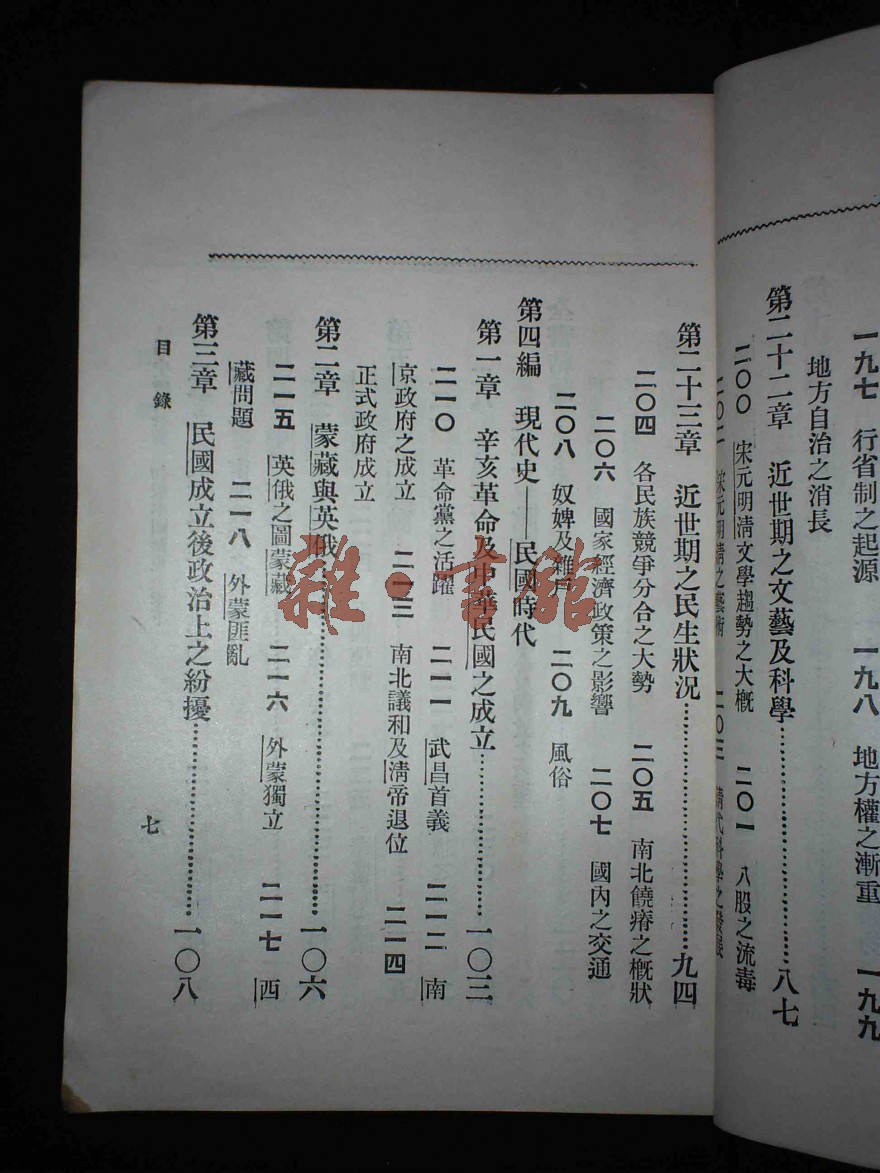 一九七　行省制之起源　一九八　地方權之漸重　一九九
地方自治之消長
第二十二章　近世期之文藝及科學……八七
二〇〇　宋元明清文學趨勢之大概　二〇一　八股之流毒
二〇二　宋元明清之藝術　二〇三　清代科學之發展
第二十三章　近世期之民生狀況……九四
二〇四　各民族競爭分合之大勢　二〇五　南北饒瘠之概狀
二〇六　國家經濟政策之影響　二〇七　國內之交通
二〇八　奴婢及雜戶　二〇九　風俗
第四編　現代史——民國時代
第一章　辛亥革命及中華民國之成立……一〇三
二一〇　革命黨之活躍　二一一　武昌首義　二一二　南
京政府之成立　二一三　南北議和及清帝退位　二一四
正式政府成立
第二章　蒙藏與英俄……一〇六
二一五　英俄之圖蒙藏　二一六　外蒙獨立　二一七　西
藏問題　二一八　外蒙匪亂
第三章　民國成立後政治上之紛擾……一〇八
目錄
七
雜·書館